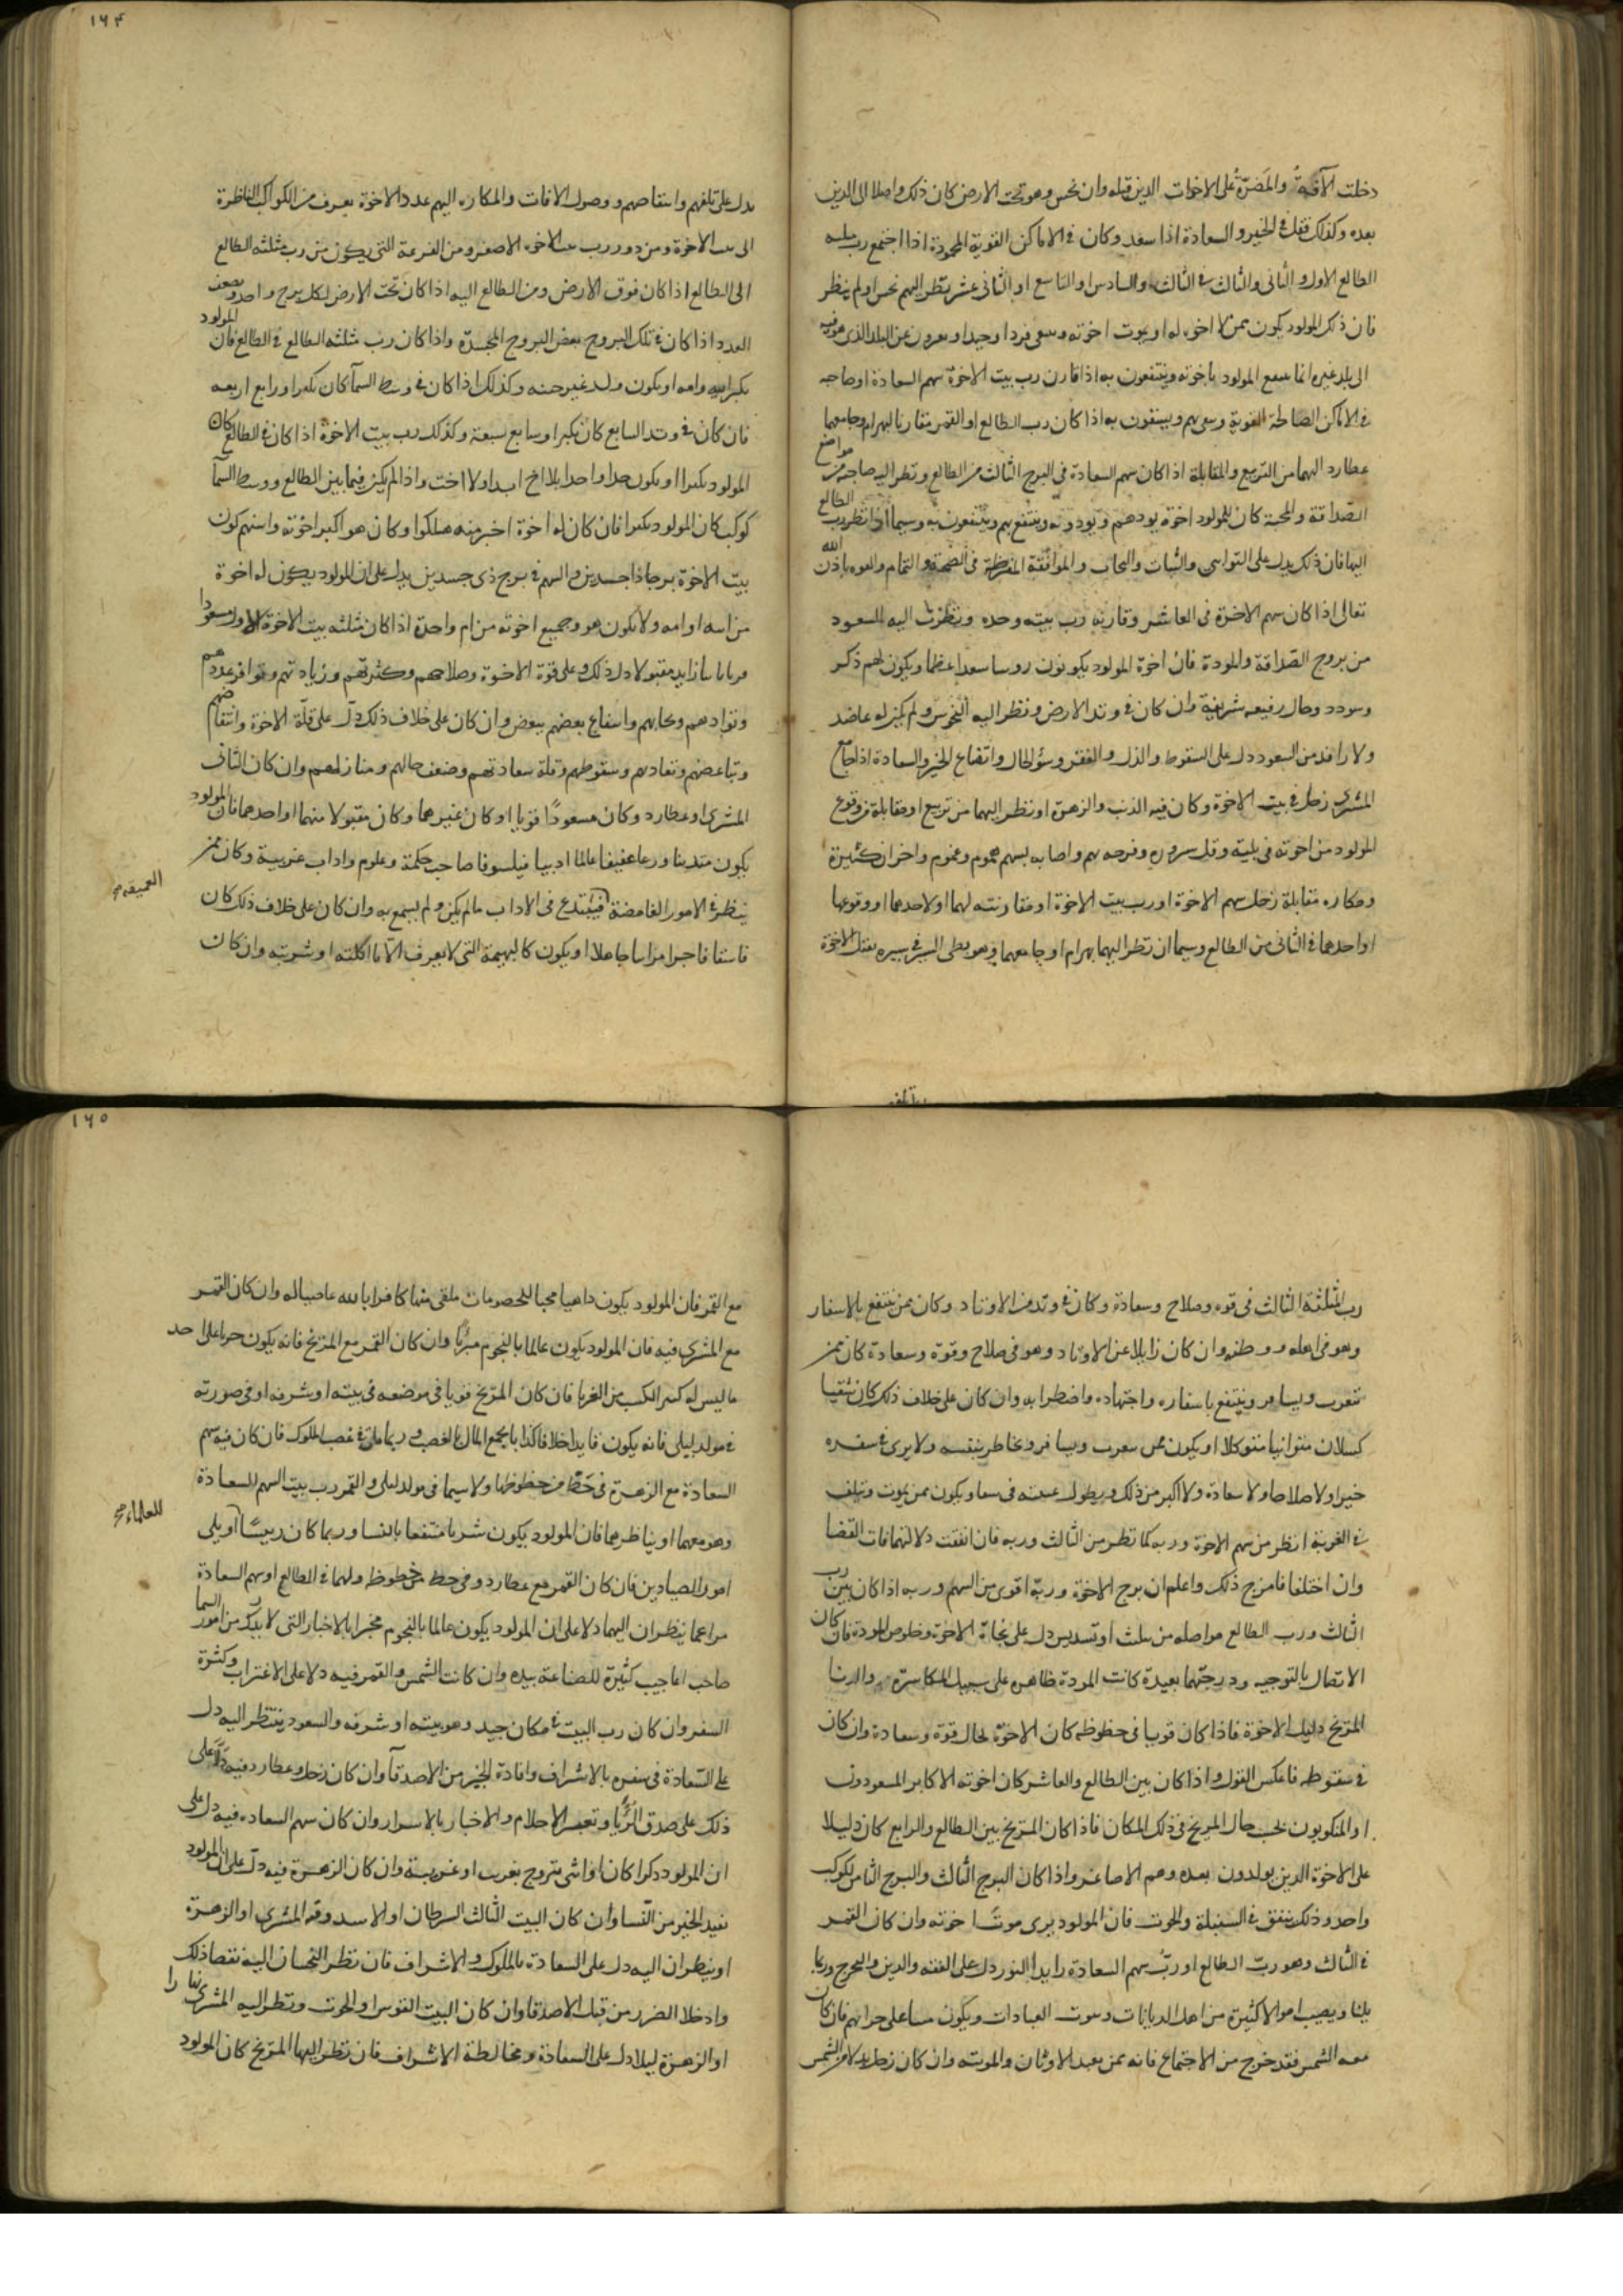 دخلت الآفة والمضرة على الاخوات الذين قبله وان نحس وهو تحت الارض كان ذلك واصلا الى الذين
بعده وكذلك فقل في الخير والسعادة اذا سعد وكان في الاماكن القوية المحمودة اذا اجتمع رب مثلثه
الطالع الاول والثاني والثالث في الثالث والسادس او التاسع او الثاني عشر بنظر اليهم نحس او لم ينظر
فان ذلك المولود يكون ممن لا اخوه له او يموت اخوته ويبقى فردا وحيدا ويعرون عن البلد الذي هو فيه
الى بلد غيره انما ينتفع المولود باخوته وينتفعون به اذا قارن رب بيت الاخوة سهم السعادة او صاحبه
في الاماكن الصالحة القوية وينتفعون به اذا كان رب الطالع او القمر مقارنا لبهرام وجامعهما
عطارد اليهما من التربيع والمقابلة اذا كان سهم السعادة في البرج الثالث من الطالع ونظر اليه صاحبه من مواضع
الصداقة والمحبة كان للمولود اخوة يودهم ويودونه وينتفع بهم وينتفعون به وسيما اذا نظر رب الطالع
اليها فان ذلك يدل على التواسي والثبات والتحاب والموافقة المفرطة في الصحبة والتمام والقوه باذن الله
تعالى اذا كان سهم الاخوة في العاشر وقارنه رب بيته وحده ونظرت اليه السعود
من بروج الصداقة والمودة فان اخوة المولود يكونون روسا سعدا عظما ويكون لهم ذكر
وسودد وحال رفيعه شريفة وان كان في وتد الارض ونظر اليه النحوس ولم يكن له عاضد
ولا رافد من السعود دل على السقوط والذل والفقر وسؤ الحال واتضاع الخير والسعادة اذا جامع
المشتري زحل في بيت الاخوة وكان فيه الذنب والزهرة او نظر اليهما من تربيع او مقابلة فوقوع
المولود من اخوته في بلية وقل سروره وفرحه بهم واصابه بسبهم هموم وغموم واحزان كثيرة
ومكاره مقابلة زحل سهم الاخوة او رب بيت الاخوة او مقارنته لهما او لاحدهما او وقوعهما
او احدهما في الثاني من الطالع وسيما ان نظر اليهما بهرام او جامعهما وهو بطى السير في سيره يقتل الاخوة
١٦٤
يدل على تلفهم وانتقاصهم ووصول الافات والمكاره اليهم عدد الاخوة يعرف من الكواكب الناظرة
الى بيت الاخوة ومن دور رب بيت الاخوه الاصغر ومن القرعة التي يكون من رب مثلثه الطالع
الى الطالع اذا كان فوق الارض ومن الطالع اليه اذا كان تحت الارض لكل برج واحد ويضعف
العدد اذا كان في تلك البروج بعض البروج المجسدة واذا كان رب مثلثه الطالع في الطالع فان المولود
بكر ابيه وامه او يكون ولد غير جنسه وكذلك اذا كان في وسط السمآ كان بكرا ورابع اربعه
فان كان في وتد السابع كان بكرا وسابع سبعة وكذلك رب بيت الاخوة اذا كان في الطالع كان
المولود بكرا او يكون وحدا واحدا بلا اخ ابدا ولا اخت واذا لم يكن فيما بين الطالع ووسط السمآ
كوكب كان المولود بكرا فان كان له اخوة اخر منه هلكوا وكان هو اكبر اخوته واسنهم كون
بيت الاخوة برجا ذا جسدين والسهم في برج ذي جسدين يدل على ان المولود يكون له اخوة
من ابيه او امه ولا يكون هو وجميع اخوته من ام واحدة اذا كان مثلثه بيت الاخوة الاول مسعودا
زايد مقبولا دل ذلك على قوة الاخوة وصلاحهم وكثرتهم وزيادتهم وتوافر عددهم
وتوادهم وتحابهم وانتفاع بعضهم ببعض وان كان على خلاف ذلك دل على قلة الاخوة وانتقاصهم
وتباغضهم وتعاديهم وسقوطهم وقلة سعادتهم وضعف حالهم ومنازلهم وان كان الثاني
المشتري او عطارد وكان مسعودا قويا او كان غيرهما وكان مقبولا منهما او احدهما فان المولود
يكون متدينا ورعا عفيفا عالما اديبا فيلسوفا صاحب حكمة وعلوم واداب غريبة وكان ممن
ينظر في الامور الغامضة فيبتدع في الاداب ما لم يكن ولم يسمع به وان كان على خلاف ذلك كان
العميقه صح
فاسقا فاجرا مراسا جاهلا او يكون كالبهيمة التي لا يعرف الا ما اكلته او شربته وان كان
رب المثلثة الثالث في قوه وصلاح وسعادة وكان في وتد من الاوتاد وكان ممن ينتفع بالاسفار
وهو في اهله ووطنه وان كان زايلا عن الاوتاد وهو في صلاح وقوة وسعادة كان ممن
يتغرب ويسافر وينتفع باسفاره واجتهاده واضطرابه وان كان على خلاف ذلك كان شقيا
كسلان متوانيا متوكلا او يكون ممن يتغرب ويسافر ويخاطر بنفسه ولا يرى في سفره
خيرا ولا صلاحا ولا سعادة ولا اكبر من ذلك ويطول غيبته في سفا ويكون ممن يموت ويتلف
في الغربة انظر من سهم الاخوة وربه كما تنظر من الثالث وربه فان اتفقت دلالتهما فات القضا
وان اختلفا فامزج ذلك واعلم ان برج الاخوة وربه اقوى من السهم وربه اذا كان بين رب
الثالث ورب الطالع مواصله من تثليث او تسديس دل على نجابة الاخوة وخلوص المودة فان كان
الاتصال بالتوجيه ودرجتهما بعيدة كانت المودة ظاهره على سبيل المكاشرة والدنا
المريخ دليل الاخوة فاذا كان قويا في حظوظه كان الاخوة بحال قوة وسعادة وان كان
في سقوطه فاعكس القول واذا كان بين الطالع والعاشر كان اخوته الاكابر المسعودون
او المنكوبون بحسب حال المريخ في ذلك المكان فاذا كان المريخ بين الطالع والرابع كان دليلا
على الاخوة الذين يولدون بعده وهم الاصاغر واذا كان البرج الثالث والبرج الثامن لكوكب
واحد وذلك يتفق في السنبلة والحوت فان المولود يرى موت اخوته وان كان القمر
في الثالث وهو رب الطالع او رب سهم السعادة زايدا النور دل على الفقه والدين والتحرج وربما
بلينا ويصيب اموالا كثيرة من اهل الديانات وبيوت العبادات ويكون فان كان
معه الشمس فقد خرج من الاجتماع فانه ممن يعبد الاوثان والموتى وان كان زحل بدلا من الشمس
١٦٥
مع القمر فان المولود يكون داهيا محبا للخصومات كافرا بالله عاصيا له وان كان القمر
مع المشتري فيه فان المولود يكون عالما بالنجوم مبرزا وان كان القمر مع المريخ فانه يكون حريصا على اخذ
ما ليس له كثير الكسب من الغربا فان كان المريخ قويا في موضعه في بيته او شرفه او في صورته
في مولد ليلي فانه يكون قايدا خلافا كذابا يجمع المال بالغصب وربما مات في غضب الملوك فان كان فيه سهم
السعادة مع الزهرة في حظ من حظوظها ولا سيما في مولد ليلي والقمر رب بيت السهم للسعادة
وهو معهما او يناظرهما فان المولود يكون شريا منتفعا بالنسا وربما كان رييسا او يلي
للعلماء صح
امور الصيادين فان كان القمر مع عطارد وفي حظ من حظوظه ولهما في الطالع او سهم السعادة
مزاعما ينظران اليهما دلا على ان المولود يكون عالما بالنجوم مخبرا بالاخبار التي لا بد من امور السما
صاحب اعاجيب كثيرة للصناعة بيده وان كانت الشمس والقمر فيه دلا على الاغتراب وكثرة
السفر وان كان رب البيت في مكان جيد وهو بيته او شرفه والسعود ينتظر اليه دل
على السعادة في سفره بالاشراف وافادة الخير من الاصدقآ وان كان زحل وعطارد فيه دلا على
ذلك على صدق الرؤيا وتعبير الاحلام والاخبار بالاسرار وان كان سهم السعاده فيه دل على
ان المولود ذكرا كان او انثى يتزوج بغريب او غريبة وان كان الزهرة فيه دل على ان المولود
يفيد الخير من النسا وان كان البيت الثالث السرطان او الاسد وفيه المشتري او الزهرة
او ينظران اليه دل على السعادة بالملوك والاشراف فان نظر النحسان اليه نقصا ذلك
وادخلا الضرر من قبل الاصدقا وان كان البيت القوس او الحوت ونظر اليه المشتري نهارا
او الزهرة ليلا دل على السعادة ومخالطة الاشراف فان نظر اليها المريخ كان المولود